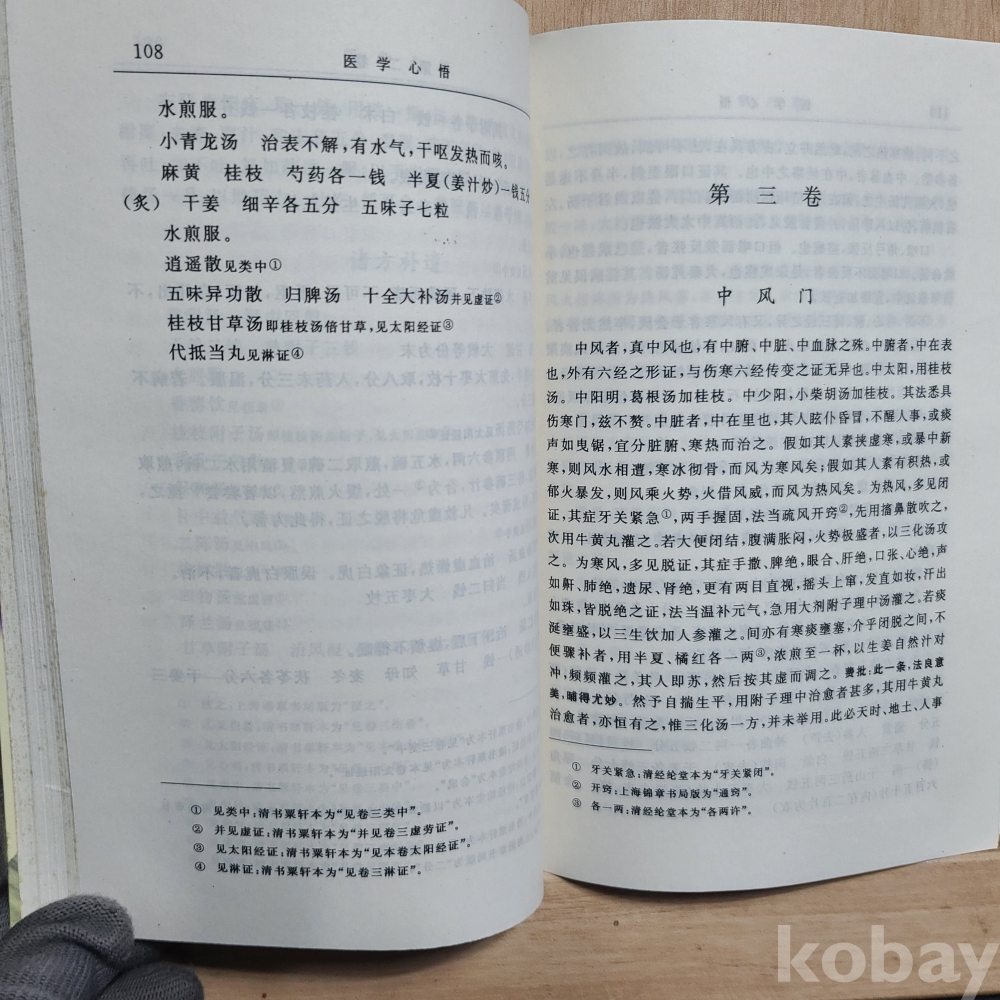 108
医学心悟
水煎服。
小青龙汤 治表不解,有水气,干呕发热而咳。
麻黄 桂枝 芍药各一钱 半夏(姜汁炒)一钱五分
(炙) 干姜 细辛各五分 五味子七粒
水煎服。
逍遥散见类中①
五味异功散 归脾汤 十全大补汤并见虚证②
桂枝甘草汤即桂枝汤倍甘草,见太阳经证③
代抵当丸见淋证④
① 见类中;清书粟轩本为“见卷三类中”。
② 并见虚证;清书粟轩本为“并见卷三虚劳证”。
③ 见太阳经证;清书粟轩本为“见本卷太阳经证”。
④ 见淋证;清书粟轩本为“见卷三淋证”。
第三卷
中风门
中风者,真中风也,有中腑、中脏、中血脉之殊。中腑者,中在表
也,外有六经之形证,与伤寒六经传变之证无异也。中太阳,用桂枝
汤。中阳明,葛根汤加桂枝。中少阳,小柴胡汤加桂枝。其法悉具
伤寒门,兹不赘。中脏者,中在里也,其人眩仆昏冒,不醒人事,或痰
声如曳锯,宜分脏腑、寒热而治之。假如其人素挟虚寒,或暴中新
寒,则风水相遭,寒冰彻骨,而风为寒风矣;假如其人素有积热,或
郁火暴发,则风乘火势,火借风威,而风为热风矣。为热风,多见闭
证,其症牙关紧急①,两手握固,法当疏风开窍②,先用搐鼻散吹之,
次用牛黄丸灌之。若大便闭结,腹满胀闷,火势极盛者,以三化汤攻
之。为寒风,多见脱证,其症手撒、脾绝,眼合、肝绝,口张、心绝,声
如鼾、肺绝,遗尿、肾绝,更有两目直视,摇头上窜,发直如妆,汗出
如珠,皆脱绝之证,法当温补元气,急用大剂附子理中汤灌之。若痰
涎壅盛,以三生饮加人参灌之。间亦有寒痰壅塞,介乎闭脱之间,不
便骤补者,用半夏、橘红各一两③,浓煎至一杯,以生姜自然汁对
冲,频频灌之,其人即苏,然后按其虚而调之。费批:此一条,法良意
美,哺得尤妙。然予自揣生平,用附子理中治愈者甚多,其用牛黄丸
治愈者,亦恒有之,惟三化汤一方,并未举用。此必天时、地土、人事
① 牙关紧急;清经纶堂本为“牙关紧闭”。
② 开窍;上海锦章书局版为“通窍”。
③ 各一两;清经纶堂本为“各两许”。
kobay